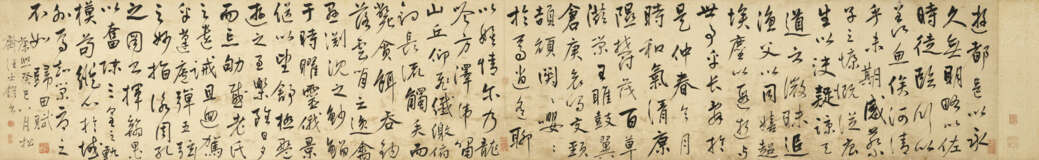 遊都邑以永
久無明略以佐
時徒臨川以
羨魚俟河清
乎未期感蔡
子之慷慨從唐
生以決疑諒天
道之微昧追
漁父以同嬉超
埃塵以遐逝與
世事乎長辭於
是仲春令月
時和氣清原
隰鬱茂百草
滋榮王雎鼓翼
倉庚哀鳴交頸
頡頏關關嚶嚶
於焉逍遙聊
以娛情爾乃龍
吟方澤虎嘯
山丘仰飛纖繳俯
釣長流觸矢而
斃貪餌吞鉤
落雲間之逸禽
懸淵沉之魦鰡
于時曜靈俄景
係以望舒極般
遊之至樂雖日夕
而忘劬感老氏
之遺誡且迴駕
乎蓬廬彈五弦
之妙指詠周孔
之圖書揮翰墨
以奮藻陳三皇之軌
模苟縱心於域
外安知榮辱之
所如 歸田賦
康熙癸巳八月松
齋汪士鋐